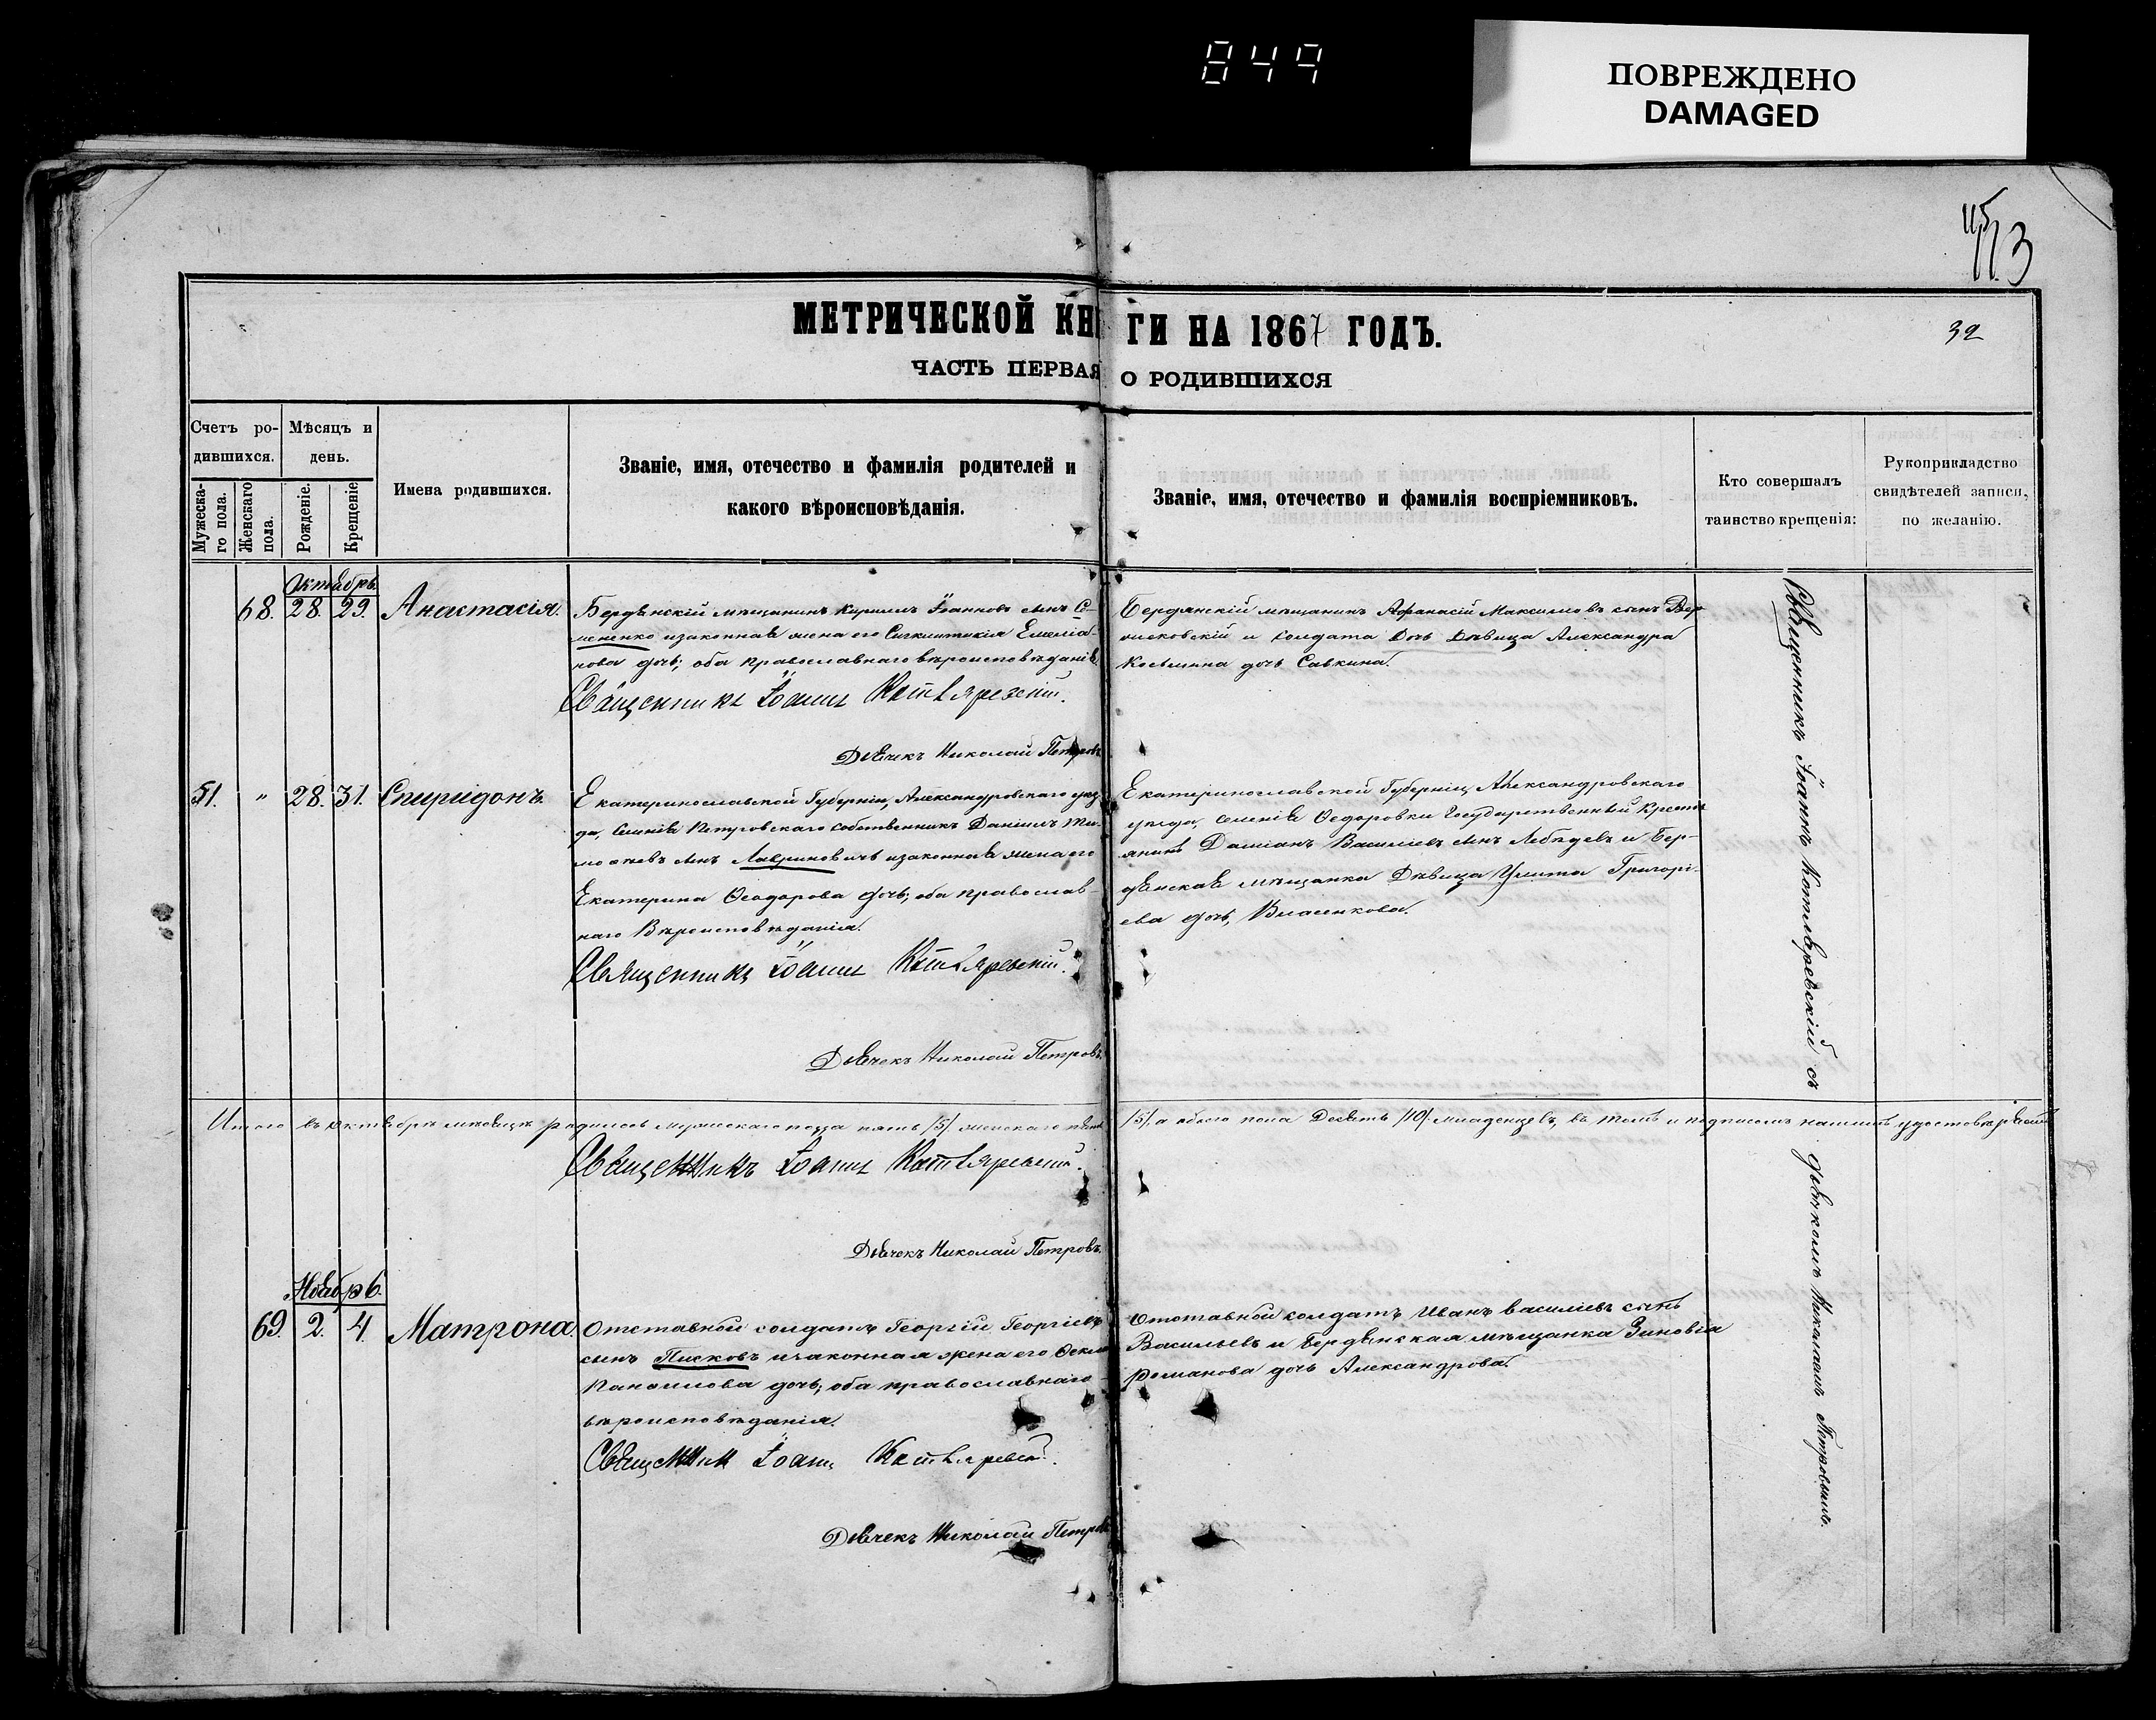 849
ПОВРЕЖДЕНО
DAMAGED
113
МЕТРИЧЕСКОЙ КНИГИ НА 1867 ГОДЪ.
32
ЧАСТЬ ПЕРВАЯ О РОДИВШИХСЯ
Счетъ ро-
дившихся.
Мужеска-
го пола.
Женскаго
пола.
Мѣсяцъ и
день.
Рожденіе.
Крещеніе
Имена родившихся.
Званіе, имя, отечество и фамилія родителей и
какого вѣроисповѣданія.
Званіе, имя, отечество и фамилія воспріемниковъ.
Кто совершалъ
таинство крещенія:
Рукоприкладство
свидѣтелей записи,
по желанію.
Октябрь.
68. 28. 29. Анастасія.
Бердянскій мѣщанинъ Кириллъ Іоанновъ сынъ Се-
мененко и законная жена его Синклитикія Емелія-
нова дочь; оба православнаго вѣроисповѣданія.
Священникъ Іоаннъ Котляревскій.
Дьячекъ Николай Петровъ
Бердянскій мѣщанинъ Афанасій Максимовъ сынъ
и солдата дочь дѣвица Александра
Косьмина дочь Савкина.
51. " 28. 31. Спиридонъ.
Екатеринославской Губерніи, Александровскаго уѣз
да, селенія Петровскаго собственникъ Даніилъ Ти-
моѳеевъ сынъ Лавриновичъ и законная жена его
Екатерина Ѳеодорова дочь; оба православ-
наго Вѣроисповѣданія.
Священникъ Іоаннъ Котляревскій.
Дьячекъ Николай Петровъ.
Екатеринославской Губерніи Александровскаго
уѣзда, селенія Ѳедоровки Государственный Кресть
янинъ Даміанъ Василіевъ сынъ Лебедевъ и Бер-
дянская мѣщанка Дѣвица Улита Григорі-
ева дочь, Власенкова.
Итого въ октябрѣ мѣсяцѣ родилось мужескаго пола пять /5/ женскаго пять /5/, а обоего пола Десять /10/ младенцевъ, въ томъ и подписомъ нашимъ удостовѣряемъ
Священникъ Іоаннъ Котляревскій.
Дьячекъ Николай Петровъ.
Ноябрь.
69. 2. 4. Матрона.
Отставной солдатъ Георгій Георгіевъ
сынъ Писковъ и законная жена его Ѳекла
дочь; оба православнаго
вѣроисповѣданія.
Іоаннъ Котляревскій.
Дьячекъ Николай Петровъ
Отставной солдатъ Иванъ Василіевъ сынъ
Васильевъ и Бердянская мѣщанка Зиновія
Романова дочь Александрова.
Священникъ Іоаннъ Котляревскій съ дьячкомъ Николаемъ Петровымъ.